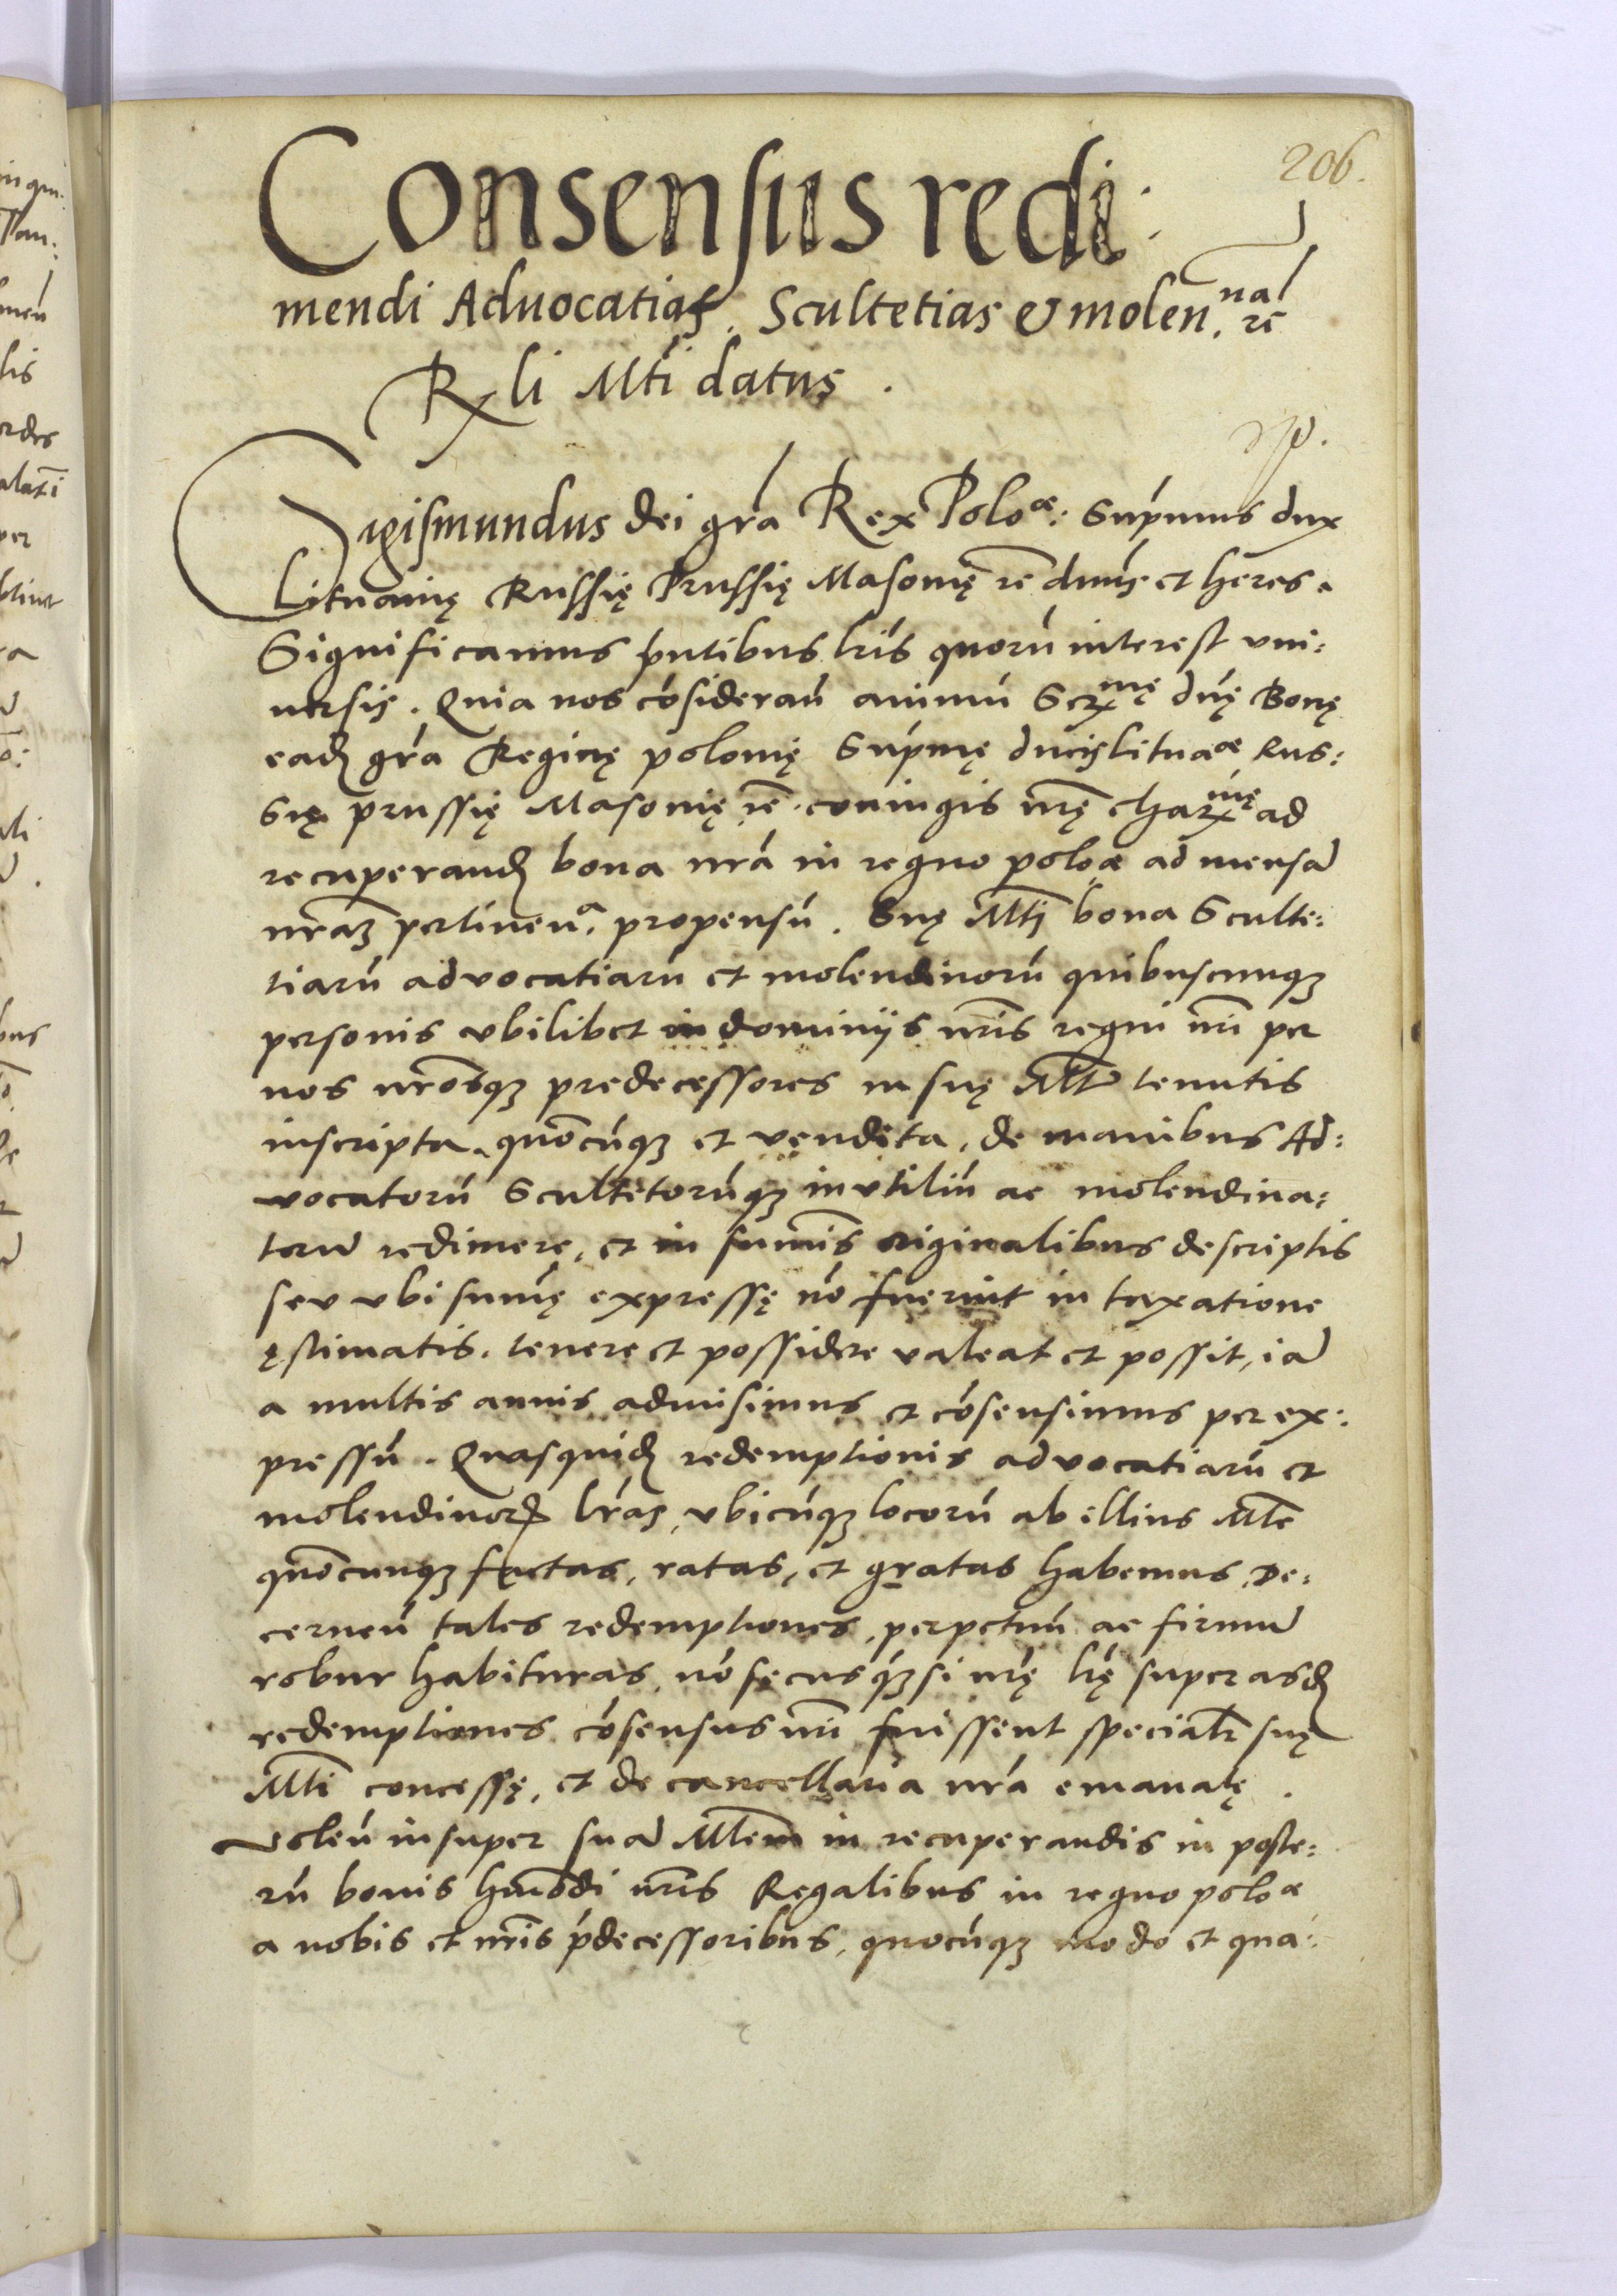 206.
Consensus redi:
mendi Advocatias, Scultetias & molen.na rē
Rli Mti datus.
Sigismundus Dei grā Rex Poloæ: Supmus dux
Lituanię Russię Prussię Masonię rē dnus et heres.
Significamus pntibus lris quorū interest uni:
uersis. Quia nos cōsiderañ animū Serxmę dnę Bonę
eadē grā Reginę polonię Supmę ducis Lituaæ Rus:
Się prussię Masonię rē. coniugis nrę charxmę ad
recuperandū bona nrā in regno poloæ ad mensā
nrām pertineña. propensū. Suę Mti bona Sculte:
tiarū advocatiarū et molendinorū quibuscunqꝫ
personis vbilibet in dominijs nris regni nri per
nos nrōsqꝫ predecessores in suę Mtis tenutis
inscripta. quōcūqꝫ et vendita, de manibus Ad:
vocatorū Scultetorūqꝫ inutiliū ac molendina:
torū redimere, et in sumis originalibus descriptis
seu vbi sumę expressę nō fuerint in taxatione
ęstimatis. tenere et possidere valeat et possit, iā
a multis annis admisimus et cōsensimus per ex:
pressū. Quasquidē redemptionis advocatiarū et
molendinorꝝ lrās, vbicūqꝫ locorū ab illius Mte
quōcunqꝫ factas, ratas, et gratas habemus, De:
cerneñ tales redemptiones, perpetuū ac firmū
robur habituras, nō secus qꝫ si nrę lrę super asdē
redemptiones cōsensus nri fuissent specialr suę
Mti concessę, et de cancellaria nrā emanatę.
Voleñ insuper suā Mtem in recuperandis in poste:
rū bonis hmōdi nris Regalibus in regno poloæ
a nobis et nris pdecessoribus, quocūqꝫ modo et qua: